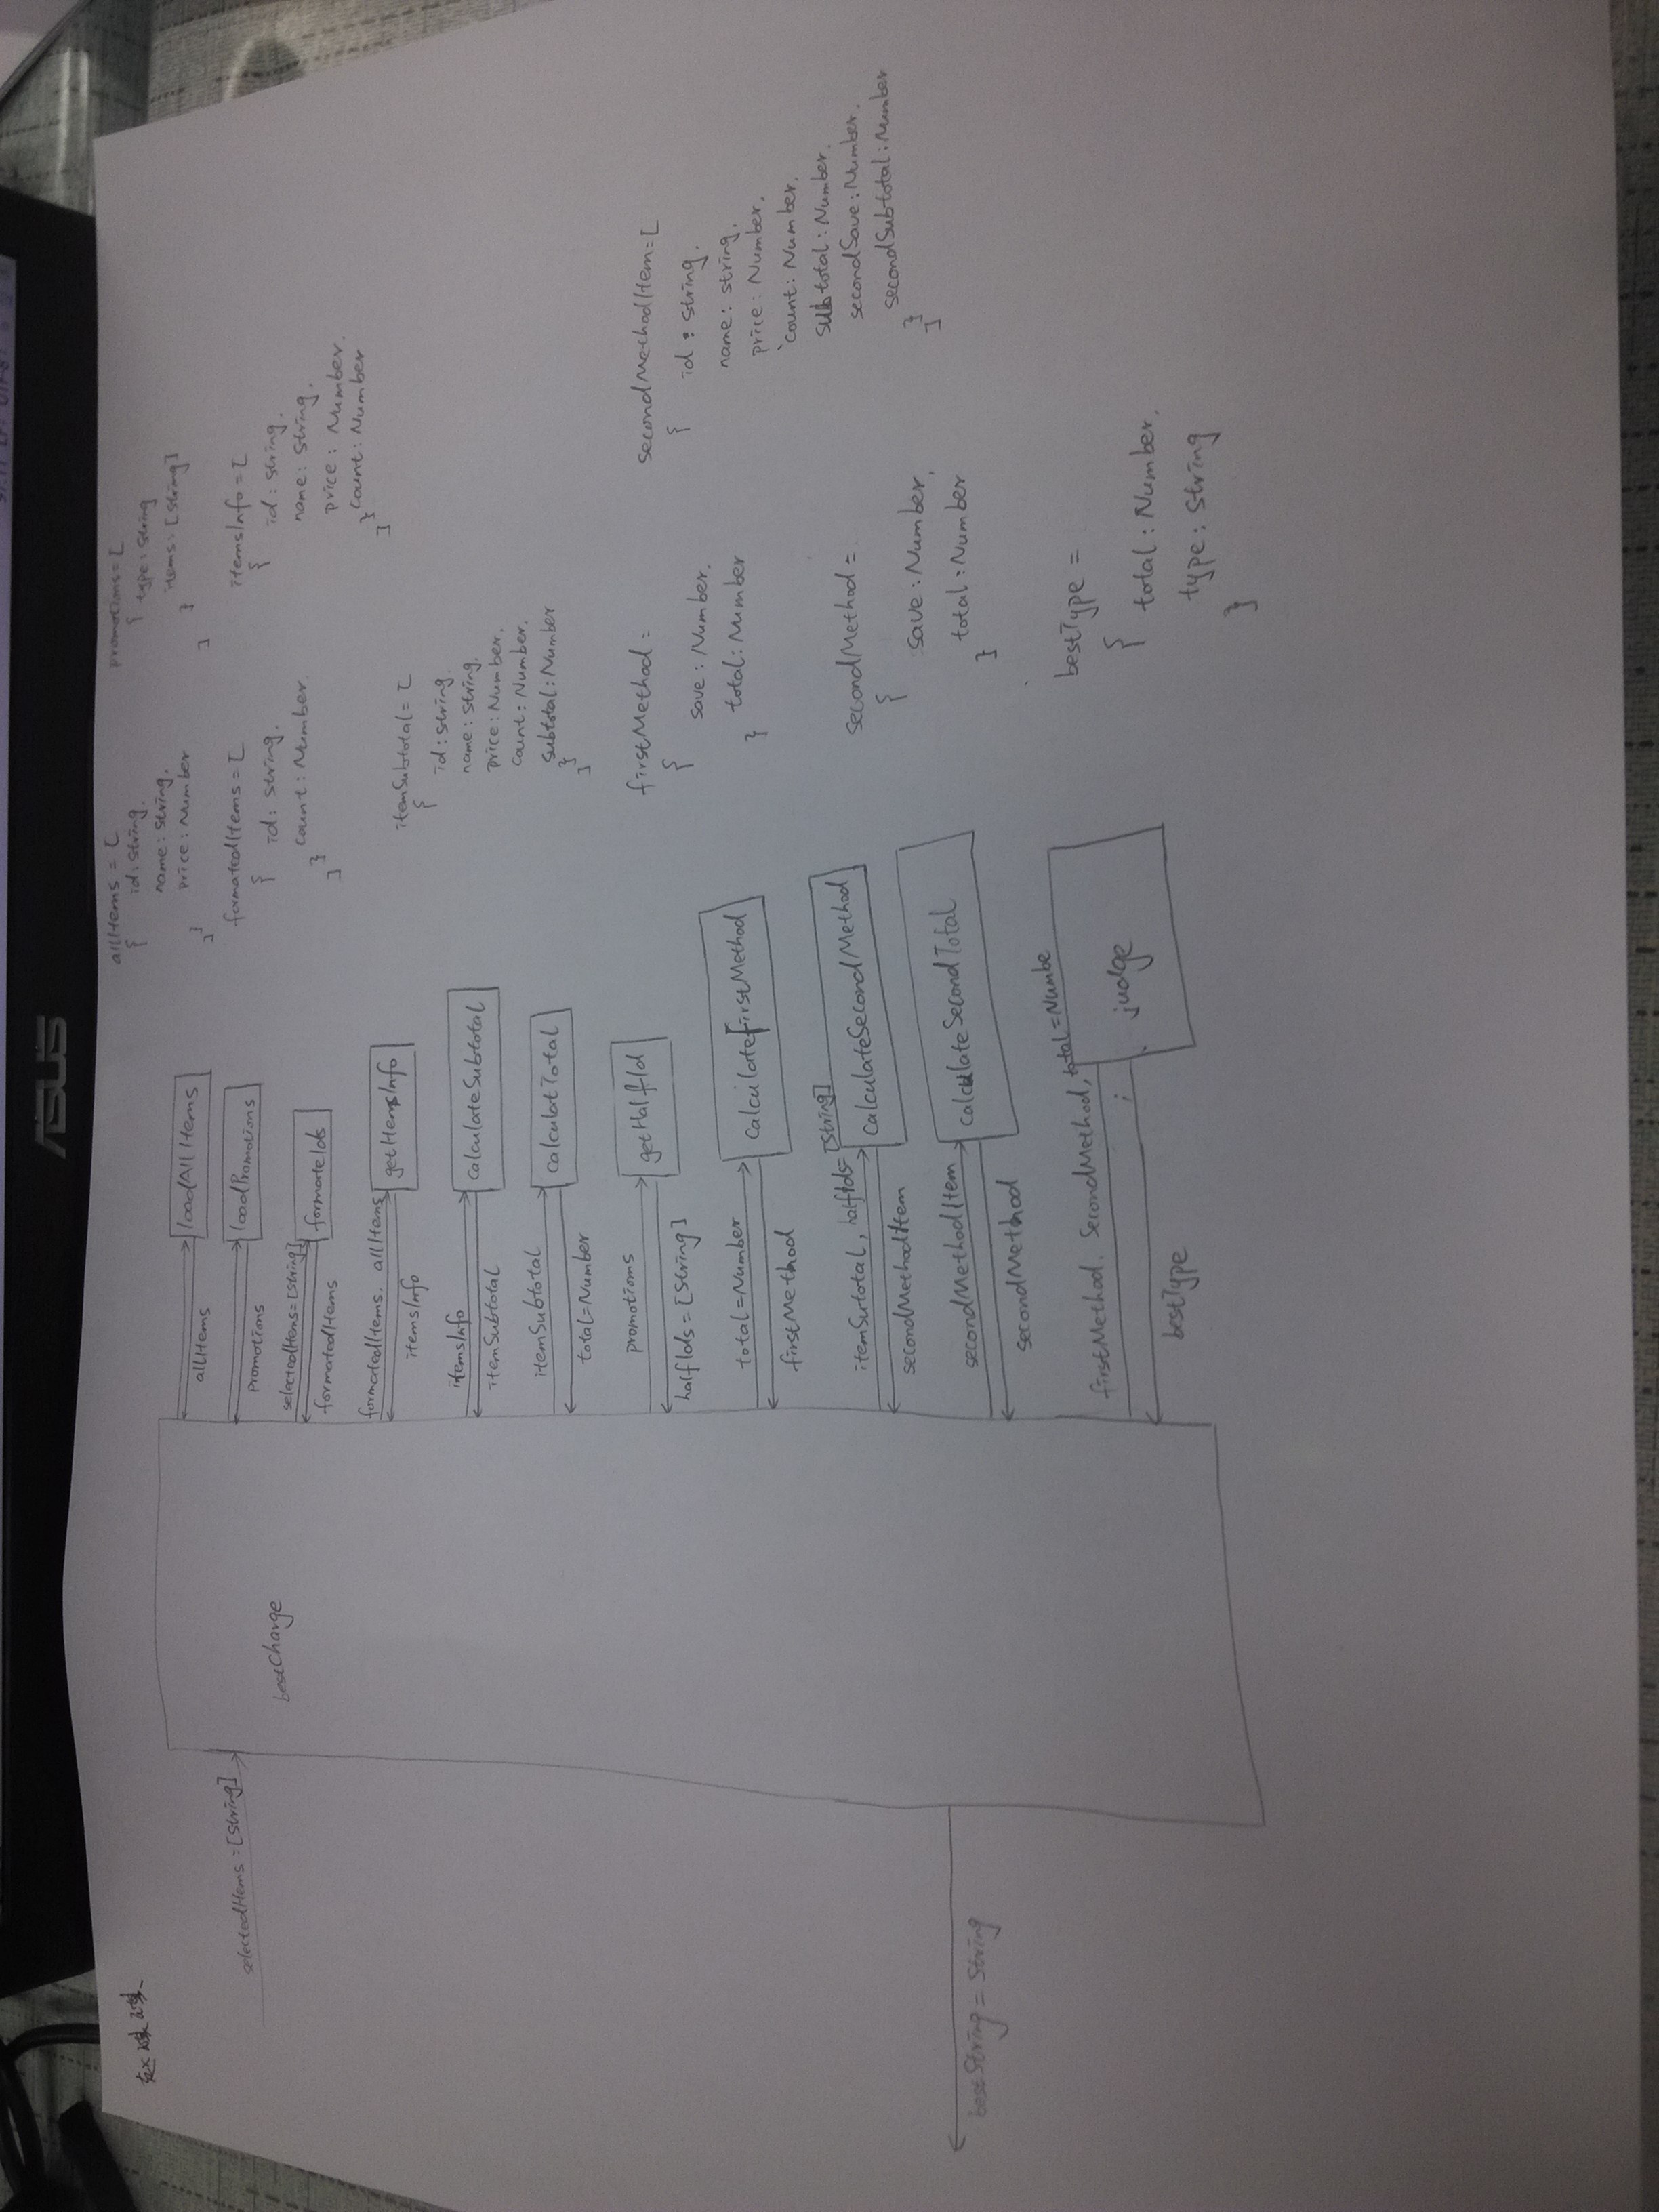 ASUS
赵媒媒
selectedItems=[String]
bestCharge
bestString=String
loadAllItems
allItems
loadPromotions
Promotions
selectedItems=[String]
formateIds
formatedItems
formatedItems. allItems
getItemsInfo
itemsInfo
itemsInfo
CalculateSubtotal
itemSubtotal
itemSubtotal
CalculatTotal
total=Number
promotions
getHalfId
halfIds=[String]
total=Number
CalculateFirstMethod
firstMethod
itemSubtotal, halfIds=[String]
CalculateSecondMethod
secondMethodItem
secondMethodItem
CalculateSecondTotal
secondMethod
firstMethod. SecondMethod, total=Numbe
judge
bestType
allItems=[
{
id:String.
name:String.
price:Number
}
]
promotions=[
{ type:String
items:[String]
}
]
formatedItems=[
{
id:String.
count:Number.
}
]
itemsInfo=[
{
id:String.
name:String.
price:Number.
count:Number
}
]
itemSubtotal=[
{
id:String
name:String.
price:Number.
count:Number.
subtotal:Number
}
]
firstMethod=
{
save:Number.
total:Number
}
secondMethodItem=[
{
id:String.
name:String.
price:Number.
count:Number.
subtotal:Number.
secondSave:Number.
secondSubtotal:Number
}
]
secondMethod=
{
save:Number.
total:Number
}
bestType=
{
total:Number.
type:String
}